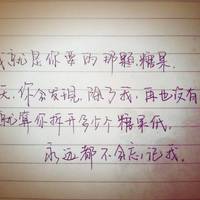 我就是你要的那颗糖果.
天,你会发现,除了我,再也没有
就算你拆开多少个糖果纸.
永远都不会忘记我.